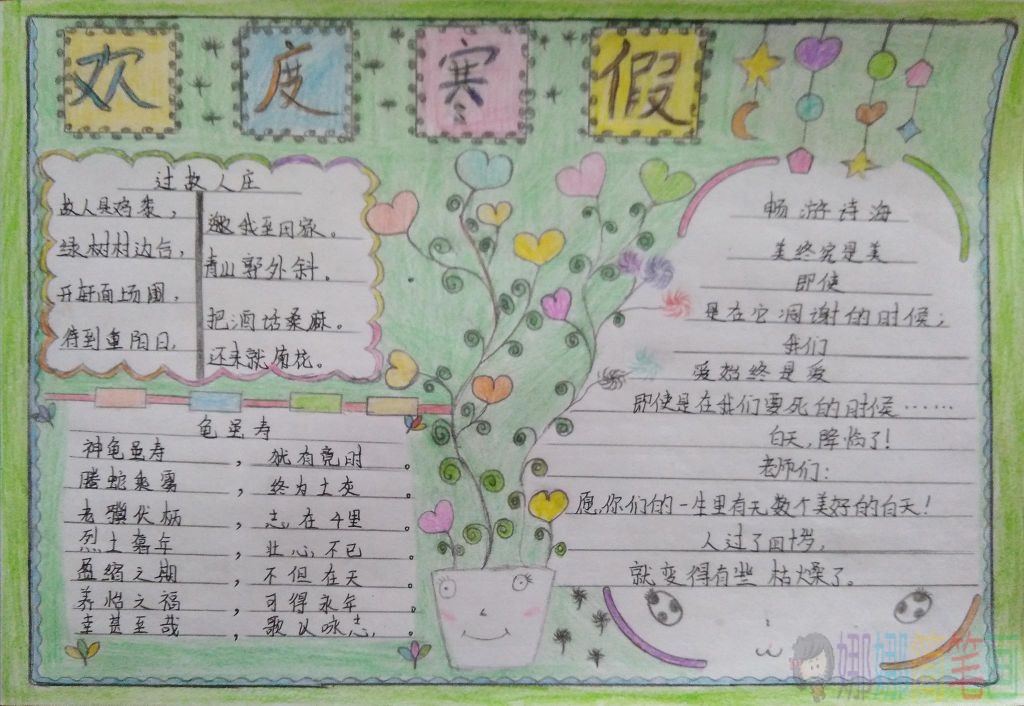 欢度寒假
过故人庄
故人具鸡黍，邀我至田家。
绿树村边合，青山郭外斜。
开轩面场圃，把酒话桑麻。
待到重阳日，还来就菊花。
龟虽寿
神龟虽寿，犹有竟时。
腾蛇乘雾，终为土灰。
老骥伏枥，志在千里
烈士暮年，壮心不已
盈缩之期，不但在天
养怡之福，可得永年
幸甚至哉，歌以咏志。
畅游诗海
美终究是美
即使
是在它凋谢的时候；
我们
爱始终是爱
即使是在我们要死的时候……
白天，降临了！
老师们：
愿你们的一生里有无数个美好的白天！
人过了四十岁，
就变得有些枯燥了。
娜娜简笔画